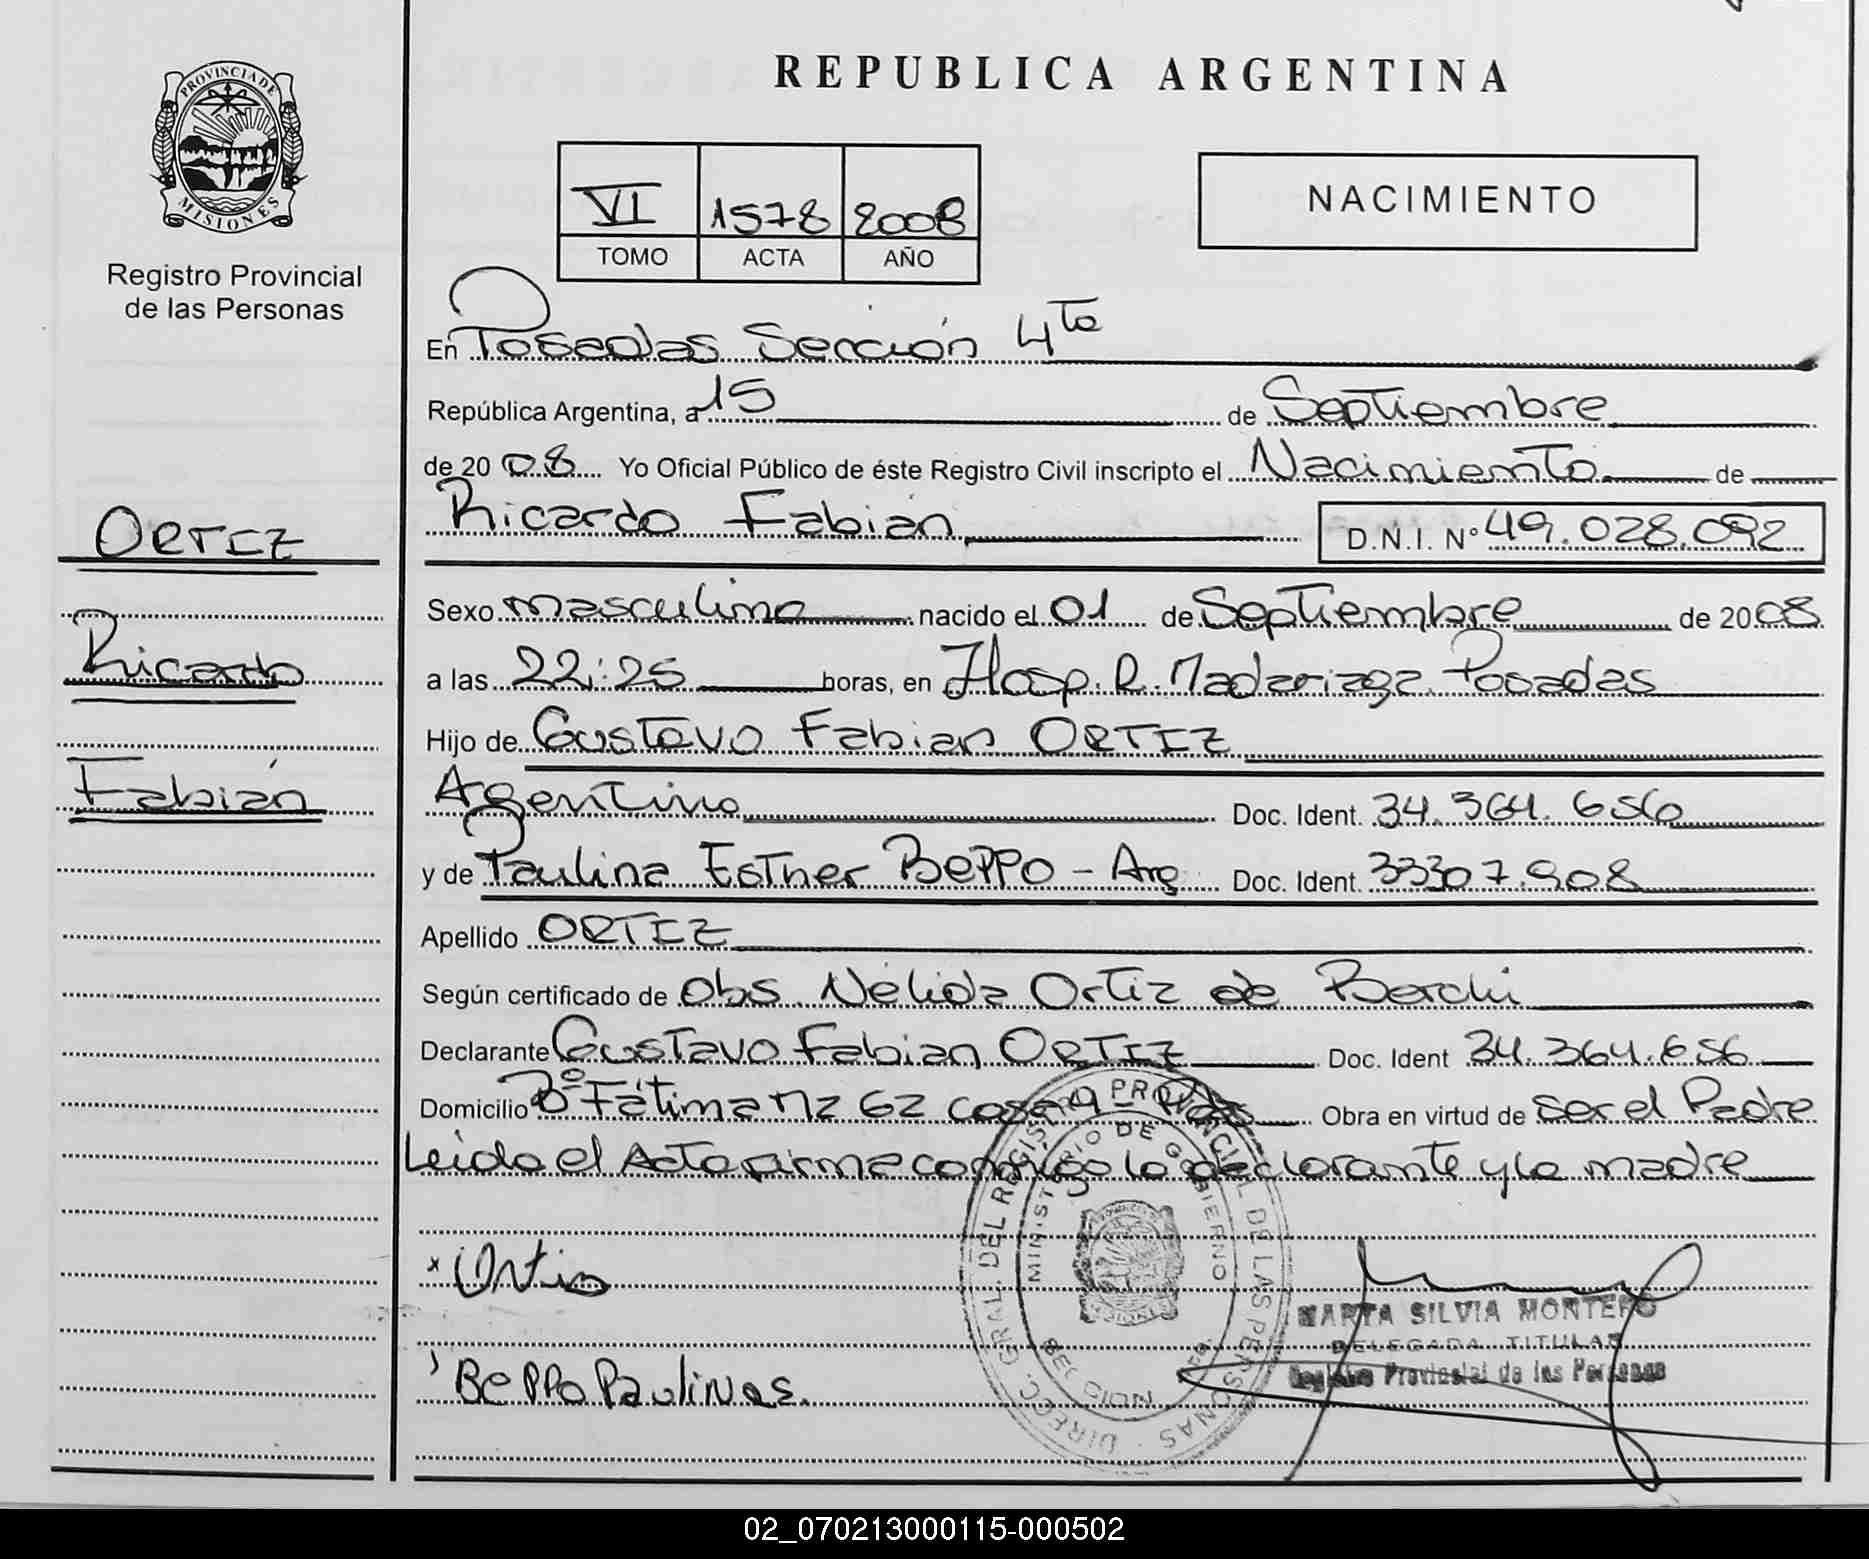 PROVINCIA DE
MISIONES
Registro Provincial
de las Personas
ORTIZ
Ricardo
Fabián
REPUBLICA ARGENTINA
VI 1578 2008
TOMO ACTA AÑO
NACIMIENTO
En Posadas Sección 4ta
República Argentina, a 15 de Septiembre
de 2008 Yo Oficial Público de éste Registro Civil inscripto el Nacimiento de
Ricardo Fabián D.N.I. N° 49.028.092
Sexo masculino nacido el 01 de Septiembre de 2008
a las 22:25 horas, en Hosp. R. Madariaga Posadas
Hijo de Gustavo Fabian ORTIZ
Argentino Doc. Ident. 34.364.656
y de Paulina Esther BEPPO - Arg Doc. Ident. 33307.908
Apellido ORTIZ
Según certificado de Obs Nélida Ortiz de Berchi
Declarante Gustavo Fabian ORTIZ Doc. Ident 34.364.656
Domicilio B° Fátima Mz 62 casa 9 - Pdas Obra en virtud de ser el Padre
Leida el Acta firma conmigo la declarante y la madre
DIREC. GRAL. DEL REGISTRO PROVINCIAL DE LAS PERSONAS
MINISTERIO DE GOBIERNO
x Ortiz
MARTA SILVIA MONTERO
DELEGADA TITULAR
Registro Provincial de las Personas
BePPo Paulina e.
02_070213000115-000502